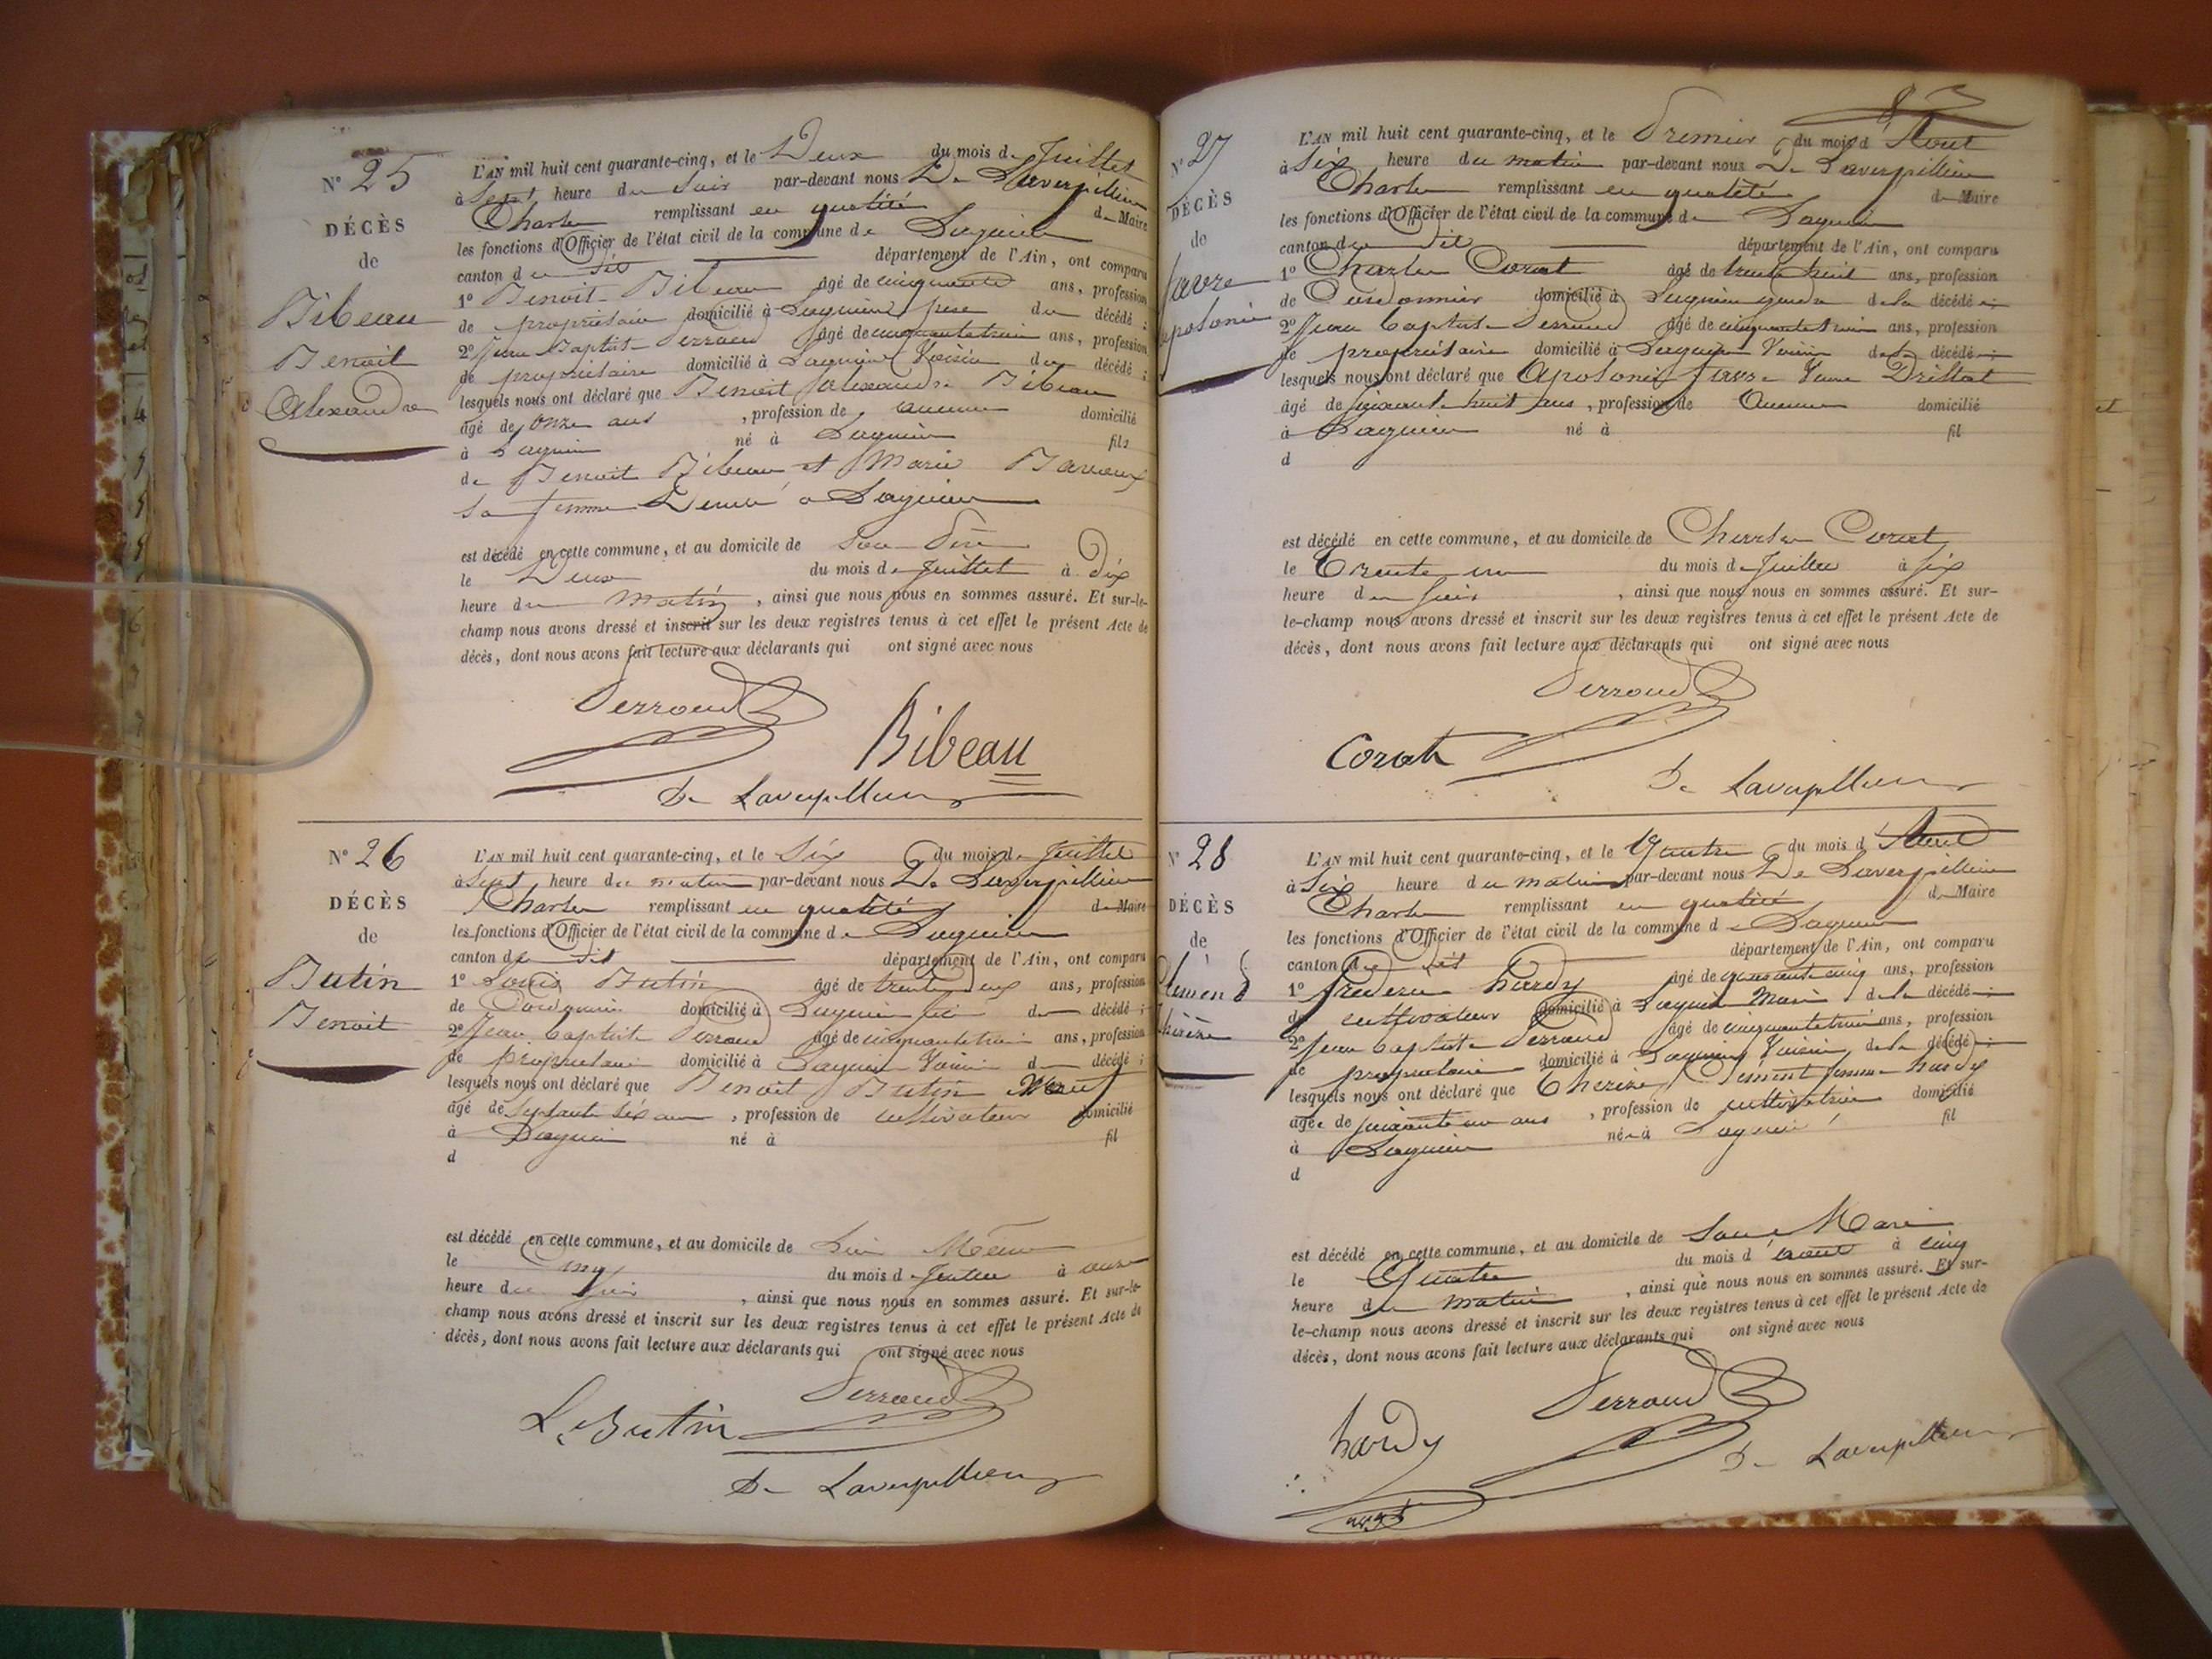 N° 25
DÉCÈS
de
Bibeau
Benoit
Alexandre
L'AN mil huit cent quarante-cinq, et le Deux du mois de Juillet
à Sept heure du Soir par-devant nous De Laverpillière
Charles remplissant en qualité de Maire
les fonctions d'Officier de l'état civil de la commune de Lagnieu
canton du dit département de l'Ain, ont comparu
1° Benoit Bibeau âgé de cinquante ans, profession
de propriétaire domicilié à Lagnieu père du décédé ;
2° Jean Baptiste Perroud âgé de cinquante trois ans, profession
de propriétaire domicilié à Lagnieu Voisin du décédé ;
lesquels nous ont déclaré que Benoit Alexandre Bibeau
âgé de onze ans , profession de aucune domicilié
à Lagnieu né à Lagnieu fils
de Benoit Bibeau et Marie
sa femme à Lagnieu
est décédé en cette commune, et au domicile de son Père
le Deux du mois de Juillet à Dix
heure du Matin , ainsi que nous nous en sommes assuré. Et sur-le-
champ nous avons dressé et inscrit sur les deux registres tenus à cet effet le présent Acte de
décès, dont nous avons fait lecture aux déclarants qui ont signé avec nous
Perroud
Bibeau
De Laverpillière
N° 26
DÉCÈS
de
Butin
Benoit
L'AN mil huit cent quarante-cinq, et le Six du mois de Juillet
à Sept heure du matin par-devant nous De Laverpillière
Charles remplissant en qualité de Maire
les fonctions d'Officier de l'état civil de la commune de Lagnieu
canton du dit département de l'Ain, ont comparu
1° Louis Butin âgé de trente deux ans, profession
de domicilié à Lagnieu du décédé ;
2° Jean Baptiste Perroud âgé de cinquante trois ans, profession
de propriétaire domicilié à Lagnieu Voisin du décédé ;
lesquels nous ont déclaré que Benoit Butin
âgé de Septante six ans , profession de cultivateur domicilié
à Lagnieu né à fil
d
est décédé en cette commune, et au domicile de Lui Même
le Cinq du mois de Juillet à onze
heure du Soir , ainsi que nous nous en sommes assuré. Et sur-le-
champ nous avons dressé et inscrit sur les deux registres tenus à cet effet le présent Acte de
décès, dont nous avons fait lecture aux déclarants qui ont signé avec nous
Perroud
L. Butin
De Laverpillière
N° 27
DÉCÈS
de
favre
apolonie
L'AN mil huit cent quarante-cinq, et le Premier du mois d'Aout
à Six heure du matin par-devant nous De Laverpillière
Charles remplissant en qualité de Maire
les fonctions d'Officier de l'état civil de la commune de Lagnieu
canton du dit département de l'Ain, ont comparu
1° Charles Corat âgé de trente huit ans, profession
de Cordonnier domicilié à Lagnieu gendre de la décédée ;
2° Jean Baptiste Perroud âgé de cinquante trois ans, profession
de propriétaire domicilié à Lagnieu Voisin de la décédée ;
lesquels nous ont déclaré que Apolonie favre Veuve
âgé de soixante huit ans , profession de Aucune domicilié
à Lagnieu né à fil
d
est décédé en cette commune, et au domicile de Charles Corat
le Trente un du mois de Juillet à six
heure du Soir , ainsi que nous nous en sommes assuré. Et sur-
le-champ nous avons dressé et inscrit sur les deux registres tenus à cet effet le présent Acte de
décès, dont nous avons fait lecture aux déclarants qui ont signé avec nous
Perroud
Corat
De Laverpillière
N° 28
DÉCÈS
de
Clémend
Thérèse
L'AN mil huit cent quarante-cinq, et le Quatre du mois d'Aout
à Six heure du matin par-devant nous De Laverpillière
Charles remplissant en qualité de Maire
les fonctions d'Officier de l'état civil de la commune de Lagnieu
canton du dit département de l'Ain, ont comparu
1° hardy âgé de cinq ans, profession
de cultivateur domicilié à Lagnieu Mari de la décédée ;
2° Jean Baptiste Perroud âgé de cinquante trois ans, profession
de propriétaire domicilié à Lagnieu Voisin de la décédée ;
lesquels nous ont déclaré que Thérèse Clément femme hardy
âgée de ans , profession de cultivatrice domicilié
à Lagnieu née à Lagnieu fil
d
est décédé en cette commune, et au domicile de Son Mari
le Quatre du mois d'aout à cinq
heure du matin , ainsi que nous nous en sommes assuré. Et sur-
le-champ nous avons dressé et inscrit sur les deux registres tenus à cet effet le présent Acte de
décès, dont nous avons fait lecture aux déclarants qui ont signé avec nous
Perroud
hardy
De Laverpillière